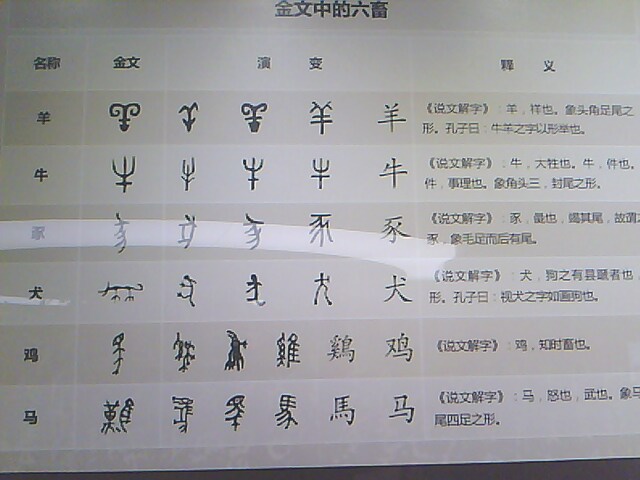 金文中的六畜
名称 金文 演 变 释 义
羊 羊 《说文解字》：羊，祥也。象头角足尾之
形。孔子曰：牛羊之字以形举也。
牛 牛 《说文解字》：牛，大牲也。牛，件也。
件，事理也。象角头三，封尾之形。
豕 豕 《说文解字》：豕，彘也，竭其尾，故谓之
豕，象毛足而后有尾。
犬 犬 《说文解字》：犬，狗之有县蹏者也
形。孔子曰：视犬之字如画狗也。
鸡 雞 鷄 鸡 《说文解字》：鸡，知时畜也。
马 馬 马 《说文解字》：马，怒也，武也。象马
尾四足之形。